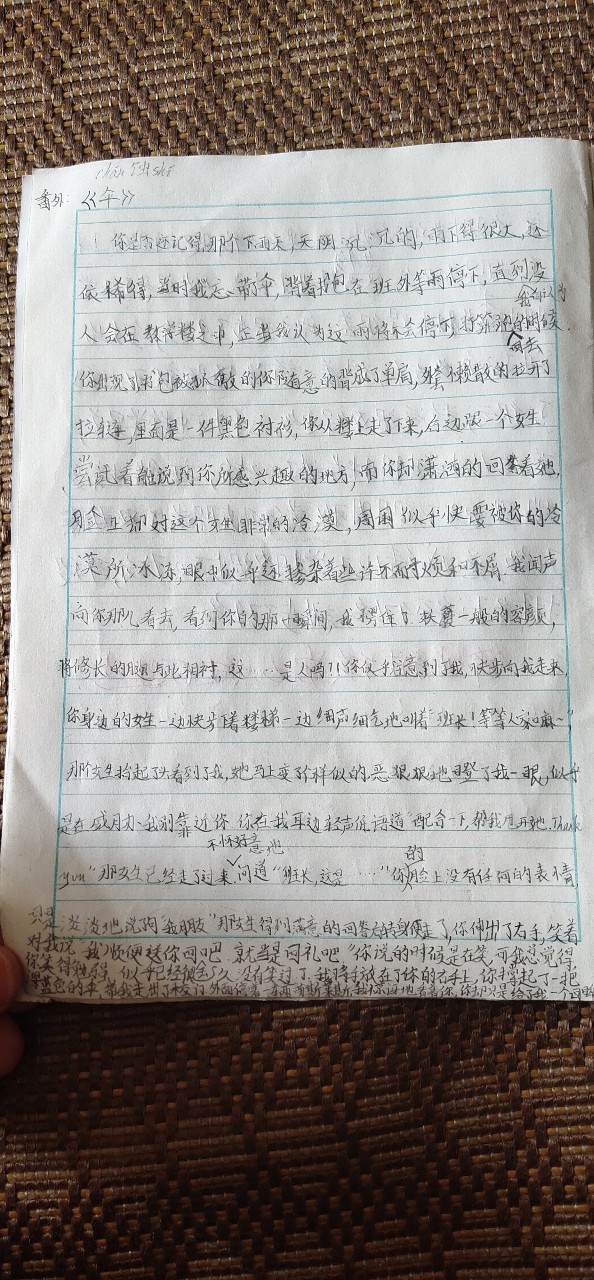 番外:《伞》
你是否还记得,那个下雨天,天阴沉沉的,雨下得很大,还
依稀,当时我忘带了伞,背着书包在班外等雨停下,直到没
会有人认为
人会在教学楼之中,正当我认为这雨将不会停下,打算的时候
回去
你出现了,书包被懒散的你随意的背成了单肩,外套懒散的拉开了
拉链,里面是一件黑色衬衫,你从楼上走了下来,后边跟一个女生
尝试着能说到你所感兴趣的地方,而你却潇洒的回答着她,
脸上却对这个女生非常的冷漠,周围似乎快要被你的冷
漠所冰冻,眼中似乎还掺杂着些许不耐烦和不屑。我闻声
向你那儿看去,看到你的那一瞬间,我愣住了一般的容颜,
将修长的腿与此相衬,这……是人吗?!你似乎留意到了我,快步向我走来,
你身边的女生一边快步下着楼梯一边细声细气地叫着"班长!等等人家嘛~"
那个女生抬起了头看到了我,她马上变了个样似的,恶狠狠地瞪了我一眼,似乎
是在威胁我别靠近你,你在我耳边轻声低语道"配合一下,帮我甩开她.Thank
不怀好意地 的
you"那女生已经走了过来问道"班长,这是……"你脸上没有任何的表情,
只是淡淡地说句"我朋友"那女生得到满意的回答后转身便走了,你伸出了右手,笑着
对我说"我顺便替你回吧,就当是回礼吧"你说的时候是在笑,可我总觉得
你笑得,似乎已经很多人没有笑过了,我将手放在了你的右手上,你撑起了一把
的伞,带我走出了